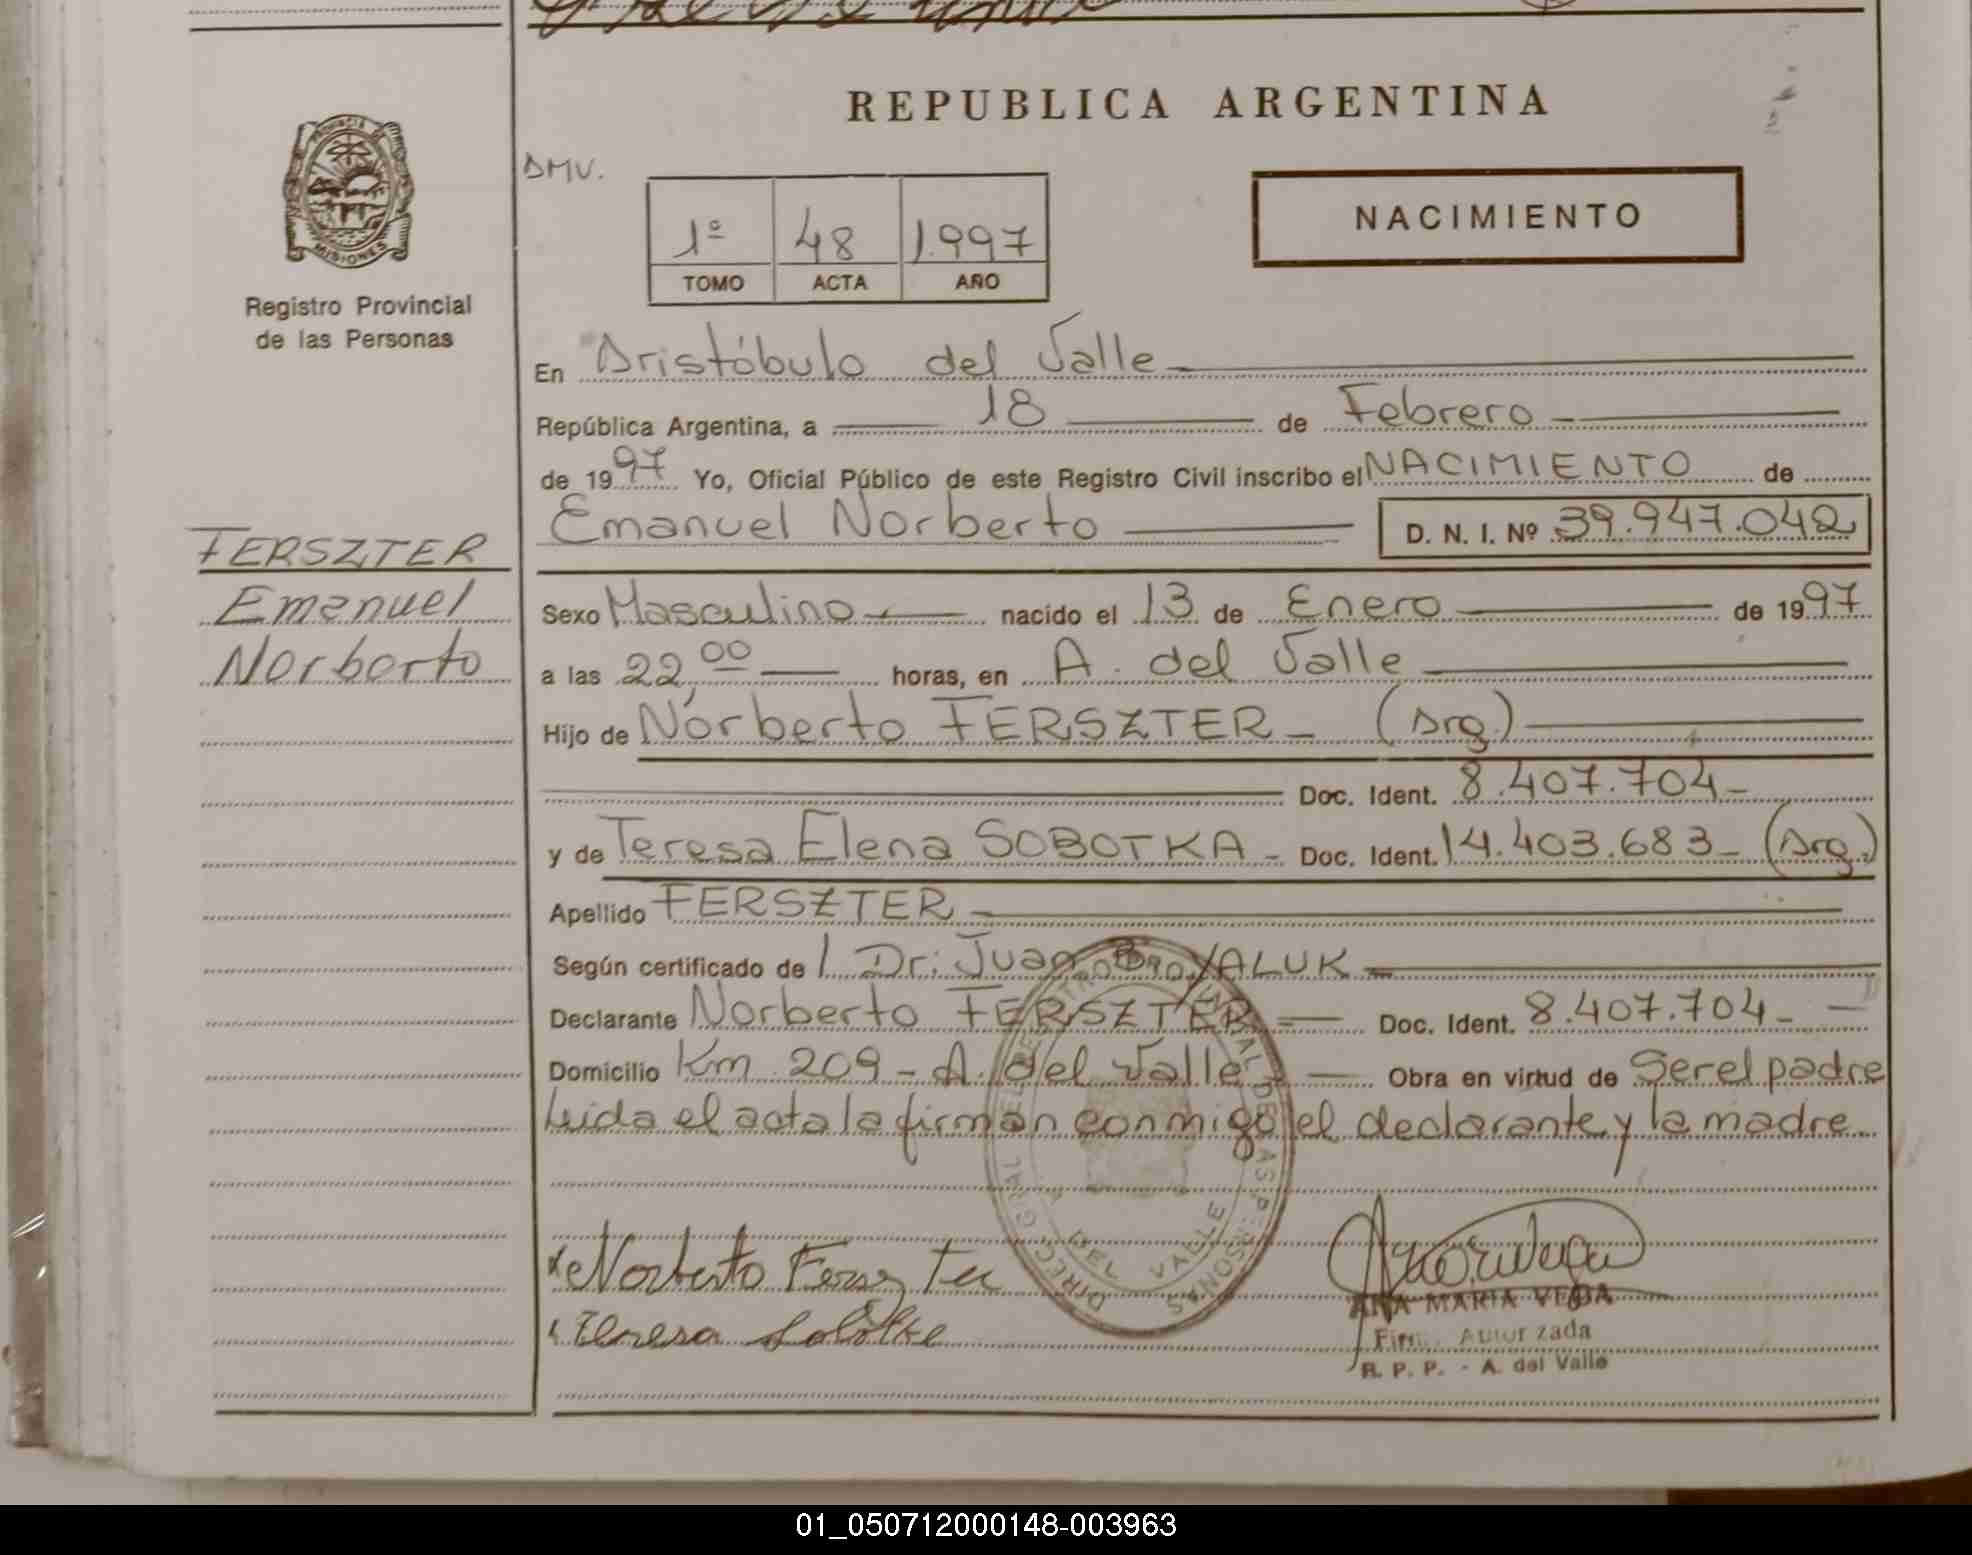 REPUBLICA ARGENTINA
PROVINCIA DE MISIONES
Registro Provincial
de las Personas
DMV.
NACIMIENTO
1º 48 1.997
TOMO ACTA AÑO
En Aristóbulo del Valle
República Argentina, a 18 de Febrero
de 1997 Yo, Oficial Público de este Registro Civil inscribo el NACIMIENTO de
Emanuel Norberto D. N. I. Nº 39.947.042
FERSZTER
Emanuel
Norberto
Sexo Masculino nacido el 13 de Enero de 1997
a las 22,00 horas, en A. del Valle
Hijo de Norberto FERSZTER (Arg.)
Doc. Ident. 8.407.704
y de Teresa Elena SOBOTKA - Doc. Ident. 14.403.683 - (Arg.)
Apellido FERSZTER
Según certificado de Dr: Juan YALUK
Declarante Norberto FERSZTER Doc. Ident. 8.407.704
Domicilio Km 209 - A. del Valle Obra en virtud de Ser el padre
Leida el acta la firman conmigo el declarante y la madre
Norberto Ferszter
Teresa Sobotka
DEL VALLE
ANA MARIA VEGA
Firma Autorizada
R. P. P. - A. del Valle
01_050712000148-003963